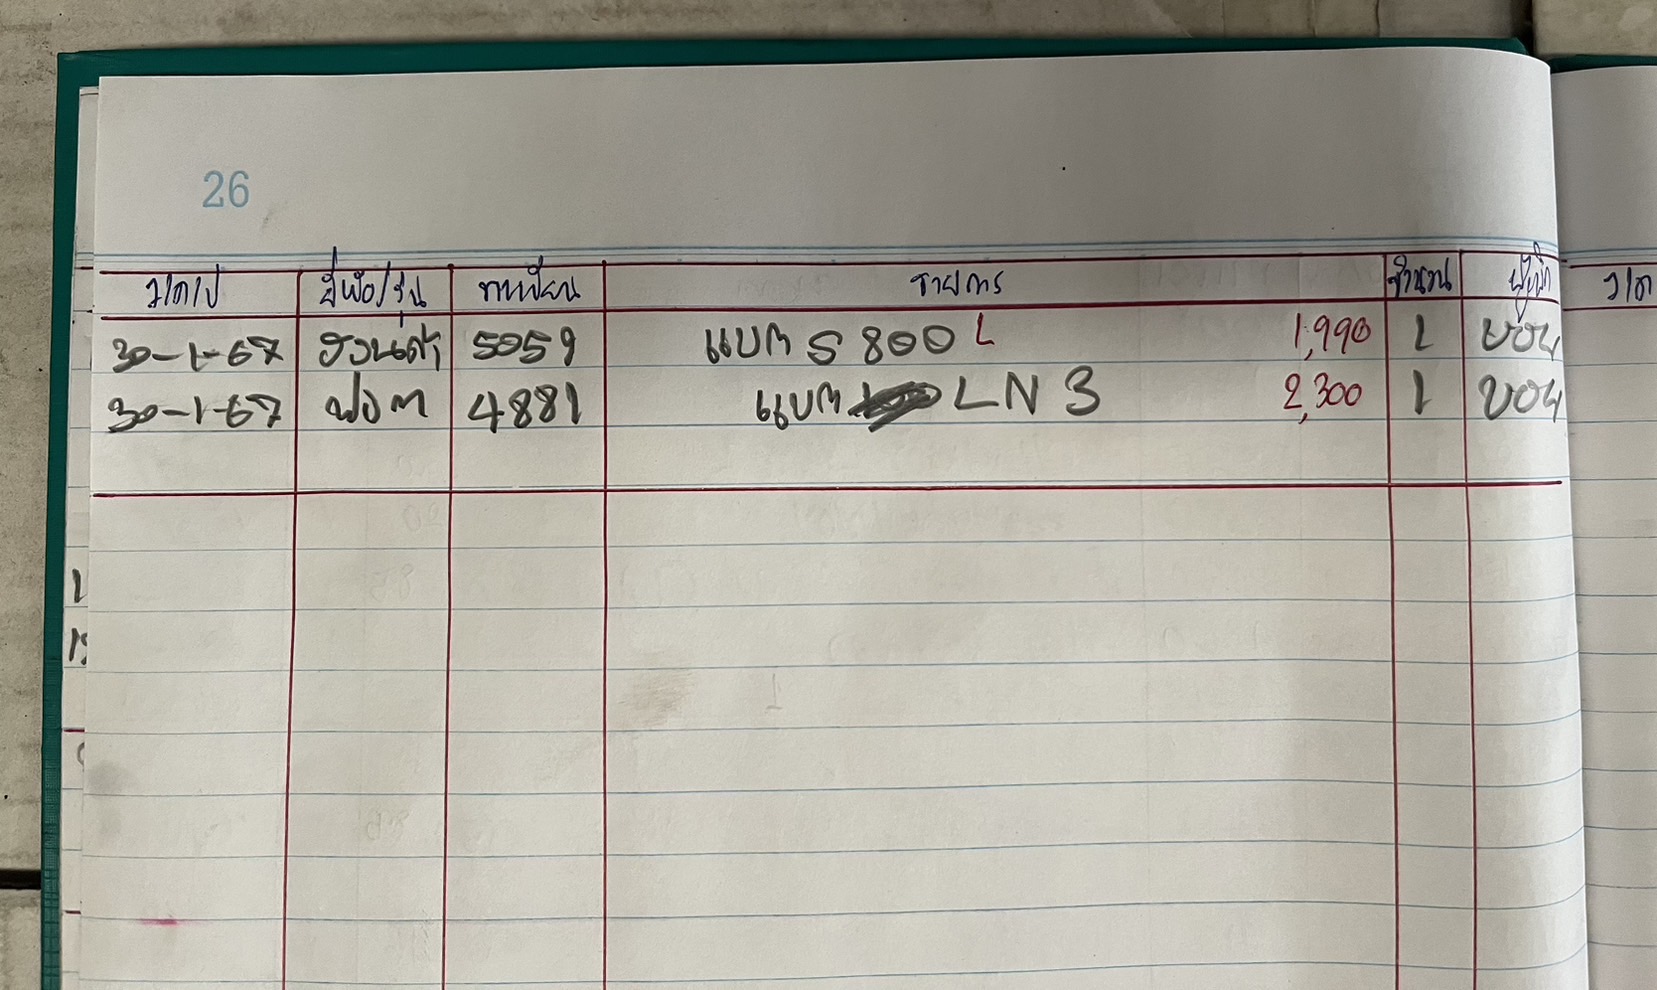 26
ว/ด/ป ยี่ห้อ/รุ่น ทะเบียน รายการ จำนวน ผู้เบิก ว/ด
30-1-67 ฮอนด้า 5059 แบต S 800 L 1,990 1 บอย
30-1-67 ฟอต 4881 แบต LN 3 2,300 1 บอย